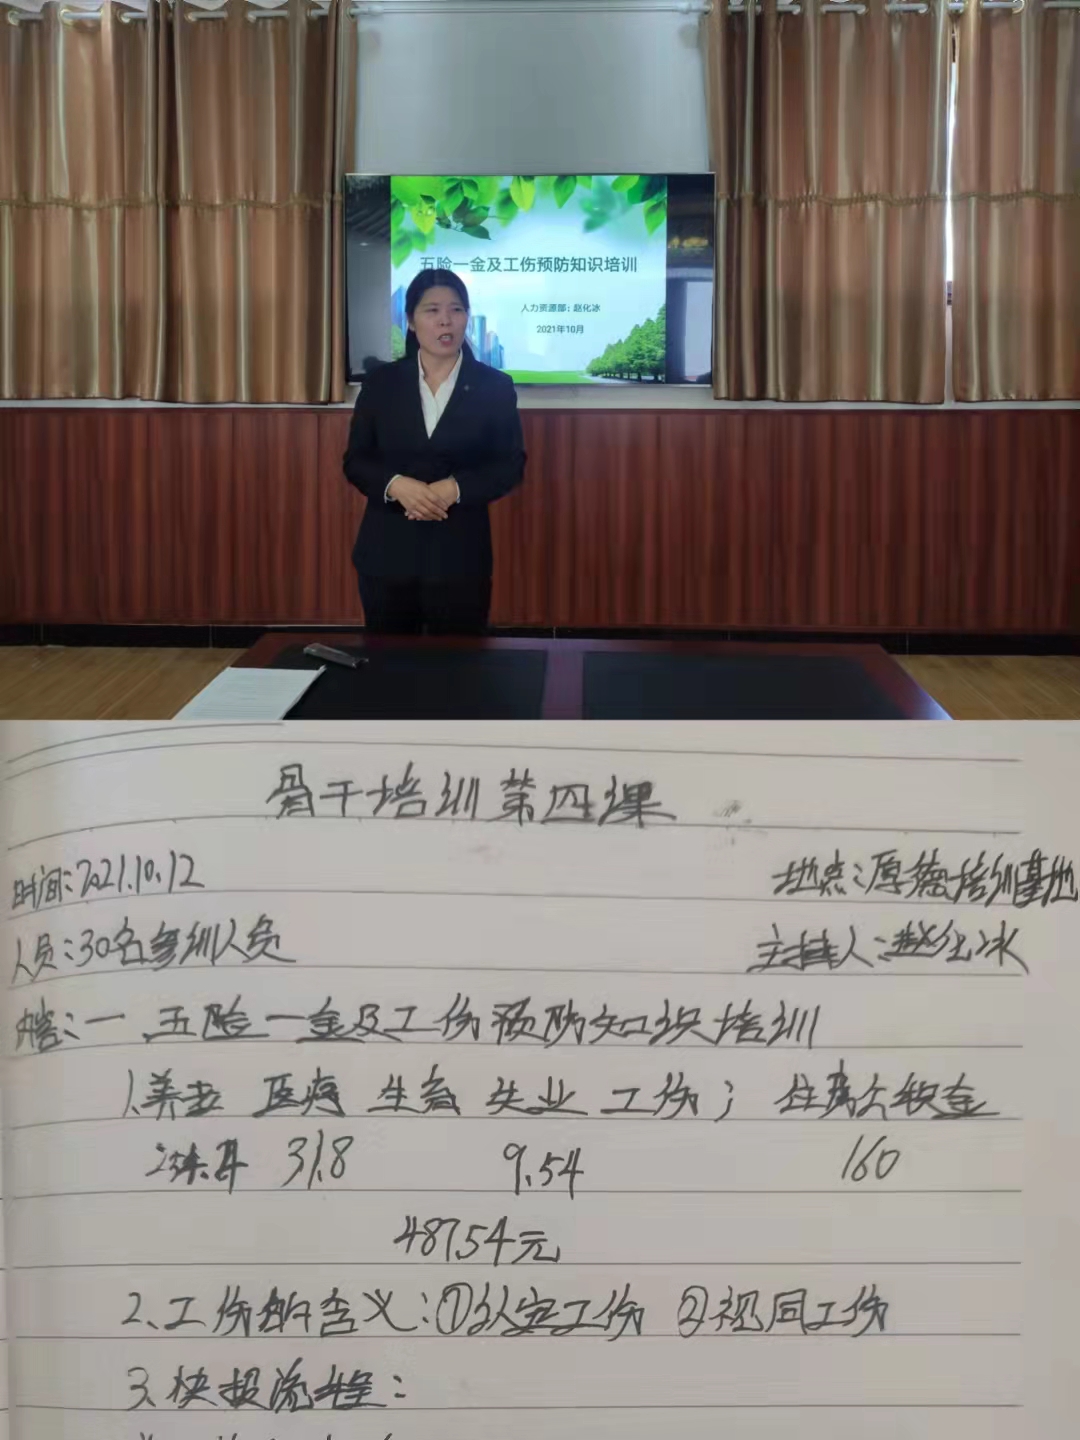 五险一金及工伤预防知识培训
人力资源部：赵化冰
2021年10月
骨干培训第四课
时间：2021.10.12 地点：厚德培训基地
人员：30名参训人员 主持人：赵化冰
内容：一、五险一金及工伤预防知识培训
1、养老 医疗 生育 失业 工伤； 住房公积金
318 9.54 160
487.54元
2、工伤的含义：①认定工伤 ②视同工伤
3、快报流程：